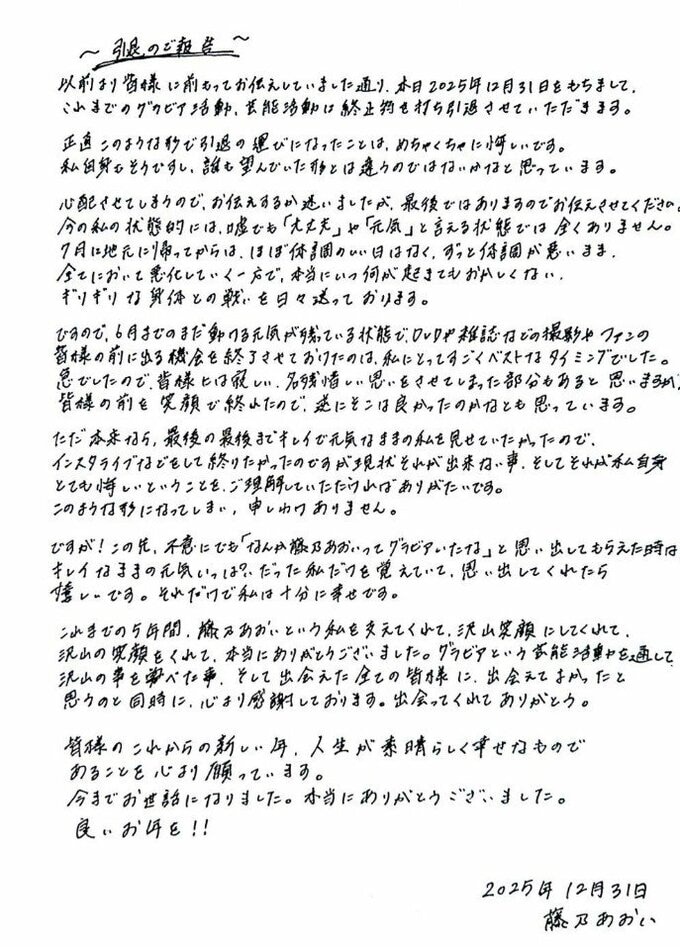 ～引退のご報告～
以前より皆様に前もってお伝えしていました通り、本日2025年12月31日をもちまして、
これまでのグラビア活動、芸能活動は終止符を打ち引退させていただきます。
正直このような形で引退の運びになったことは、めちゃくちゃに悔しいです。
私自身もそうですし、誰も望んでいた形とは違うのではないかなと思っています。
心配させてしまうので、お伝えするか迷いましたが、最後ではありますのでお伝えさせてください。
今の私の状態的には、嘘でも「大丈夫」や「元気」と言える状態では全くありません。
7月に地元に帰ってからは、ほぼ体調のいい日はなく、ずっと体調が悪いまま、
全てにおいて悪化していく一方で、本当にいつ何が起きてもおかしくない、
ギリギリな身体との戦いを日々送っております。
ですので、6月までのまだ動ける元気が残っている状態で、DVDや雑誌などの撮影やファンの
皆様の前に出る機会を終了させておけたのは、私にとってすごくベストなタイミングでした。
急でしたので、皆様には寂しい、名残惜しい思いをさせてしまった部分もあると思いますが、
皆様の前を笑顔で終れたので、逆にそこは良かったのかなとも思っています。
ただ本来なら、最後の最後までキレイで元気なままの私を見せていたかったので、
インスタライブなどをして終りたかったのですが現状それが出来ない事、そしてそれが私自身
とても悔しいということを、ご理解していただければありがたいです。
このような形になってしまい、申しわけありません。
ですが!この先、不意にでも「なんか藤乃あおいってグラビアいたな」と思い出してもらえた時は
キレイなままの元気いっぱい、だった私だけを覚えていて、思い出してくれたら
嬉しいです。それだけで私は十分に幸せです。
これまでの5年間、藤乃あおいという私を支えてくれて、沢山笑顔にしてくれて、
沢山の笑顔をくれて、本当にありがとうございました。グラビアという芸能活動を通して
沢山の事を学べた事、そして出会えた全ての皆様に、出会えてよかったと
思うのと同時に、心より感謝しております。出会ってくれてありがとう。
皆様のこれからの新しい年、人生が素晴らしく幸せなもので
あることを心より願っています。
今までお世話になりました。本当にありがとうございました。
良いお年を!!
2025年12月31日
藤乃あおい